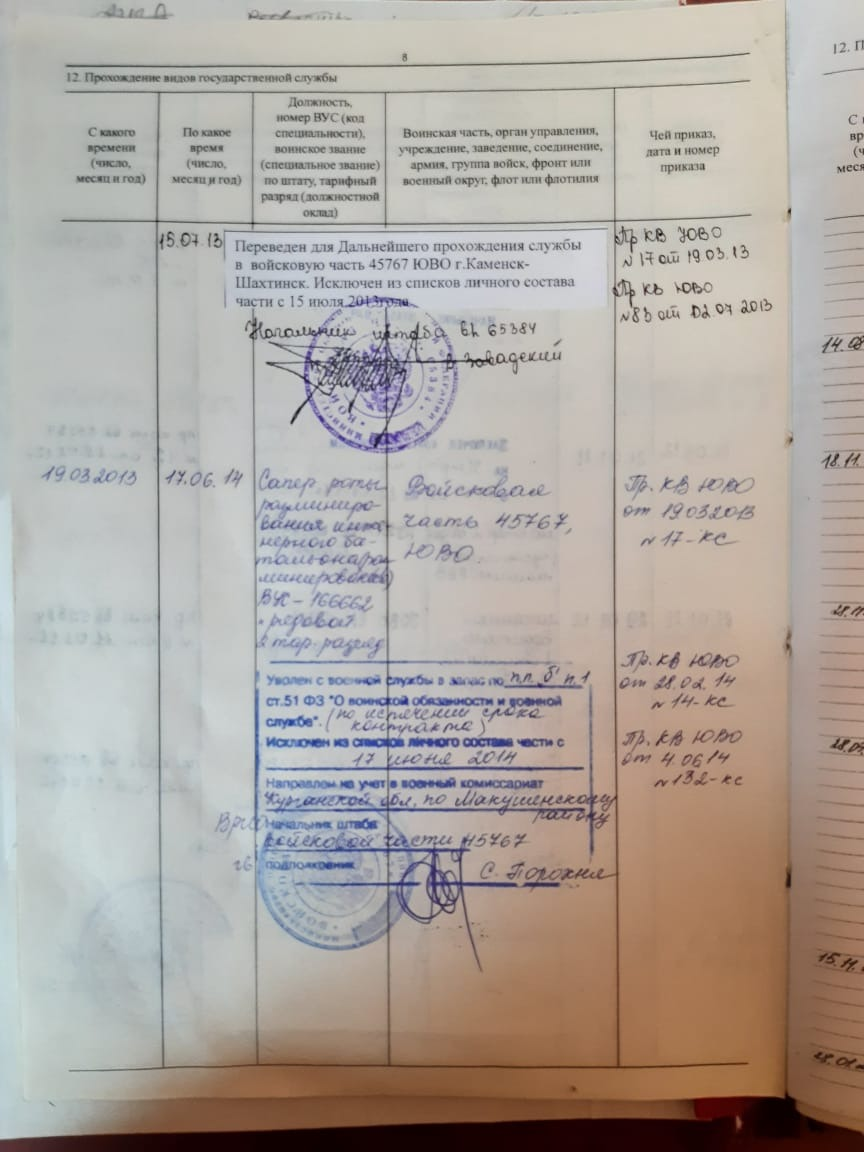 8
12. Прохождение видов государственной службы
С какого
времени
(число,
месяц и год)
По какое
время
(число,
месяц и год)
Должность,
номер ВУС (код
специальности),
воинское звание
(специальное звание)
по штату, тарифный
разряд (должностной
оклад)
Воинская часть, орган управления,
учреждение, заведение, соединение,
армия, группа войск, фронт или
военный округ, флот или флотилия
Чей приказ,
дата и номер
приказа
15.07.13
Переведен для Дальнейшего прохождения службы
в войсковую часть 45767 ЮВО г.Каменск-
Шахтинск. Исключен из списков личного состава
части с 15 июля 2013года
Пр КВ ЮВО
№17 от 19.03.13
Пр КВ ЮВО
№83 от 02.07 2013
Начальник штаба вч 65384
Завадский
19.03 2013
17.06. 14
Сапер роты
разминиро-
вания инже-
нерного ба-
тальона(раз
минирования)
ВУС-166662
"рядовой"
2 тар. разряд
Войсковая
часть 45767,
ЮВО.
Пр. КВ ЮВО
от 19.03 2013
№17-КС
Уволен с военной службы в запас по п.п „б" п.1
ст.51 ФЗ "О воинской обязанности и военной
службе". (по истечении срока
контракта)
Исключен из списков личного состава части с
17 июня 2014
Направлен на учет в военный комиссариат
Курганской обл, по Макушинскому
району
ВрИО Начальник штаба
войсковой части 45767
гв подполковник
С. Порохня
Пр. КВ ЮВО
от 28.02. 14
№14-КС
Пр. КВ ЮВО
от 4.06 14
№132-КС
12. П
18.11.
15.11.